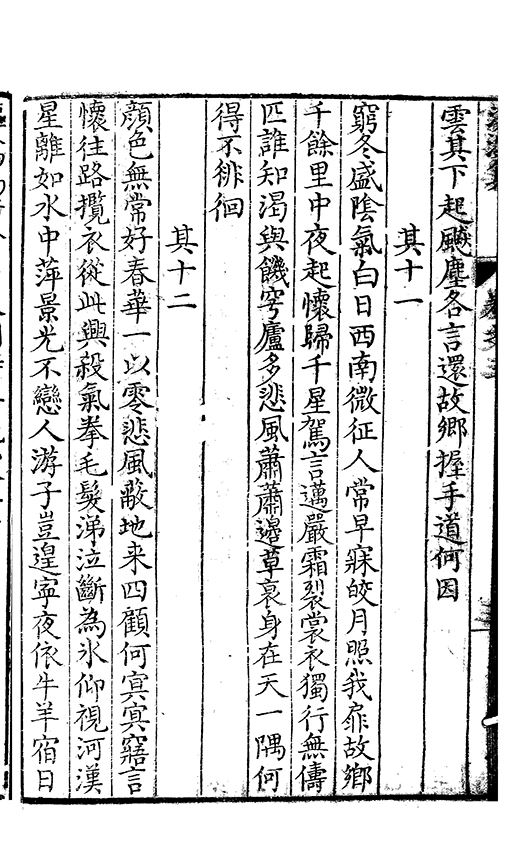 雲其下起飈塵各言還故鄉握手道何因
其十一
窮冬盛陰氣白日西南微征人常早寐皎月照我扉故鄉
千餘里中夜起懷歸千星駕言邁嚴霜裂裳衣獨行無儔
匹誰知渴與饑穹廬多悲風蕭蕭邊草哀身在天一隅何
得不徘徊
其十二
顔色無常好春華一以零悲風敵地来四顧何㝠㝠寤言
懷往路攬衣從此興殺氣拳毛髮涕泣斷為氷仰視河漢
星離如水中萍景光不戀人游子豈遑寧夜依牛羊宿日